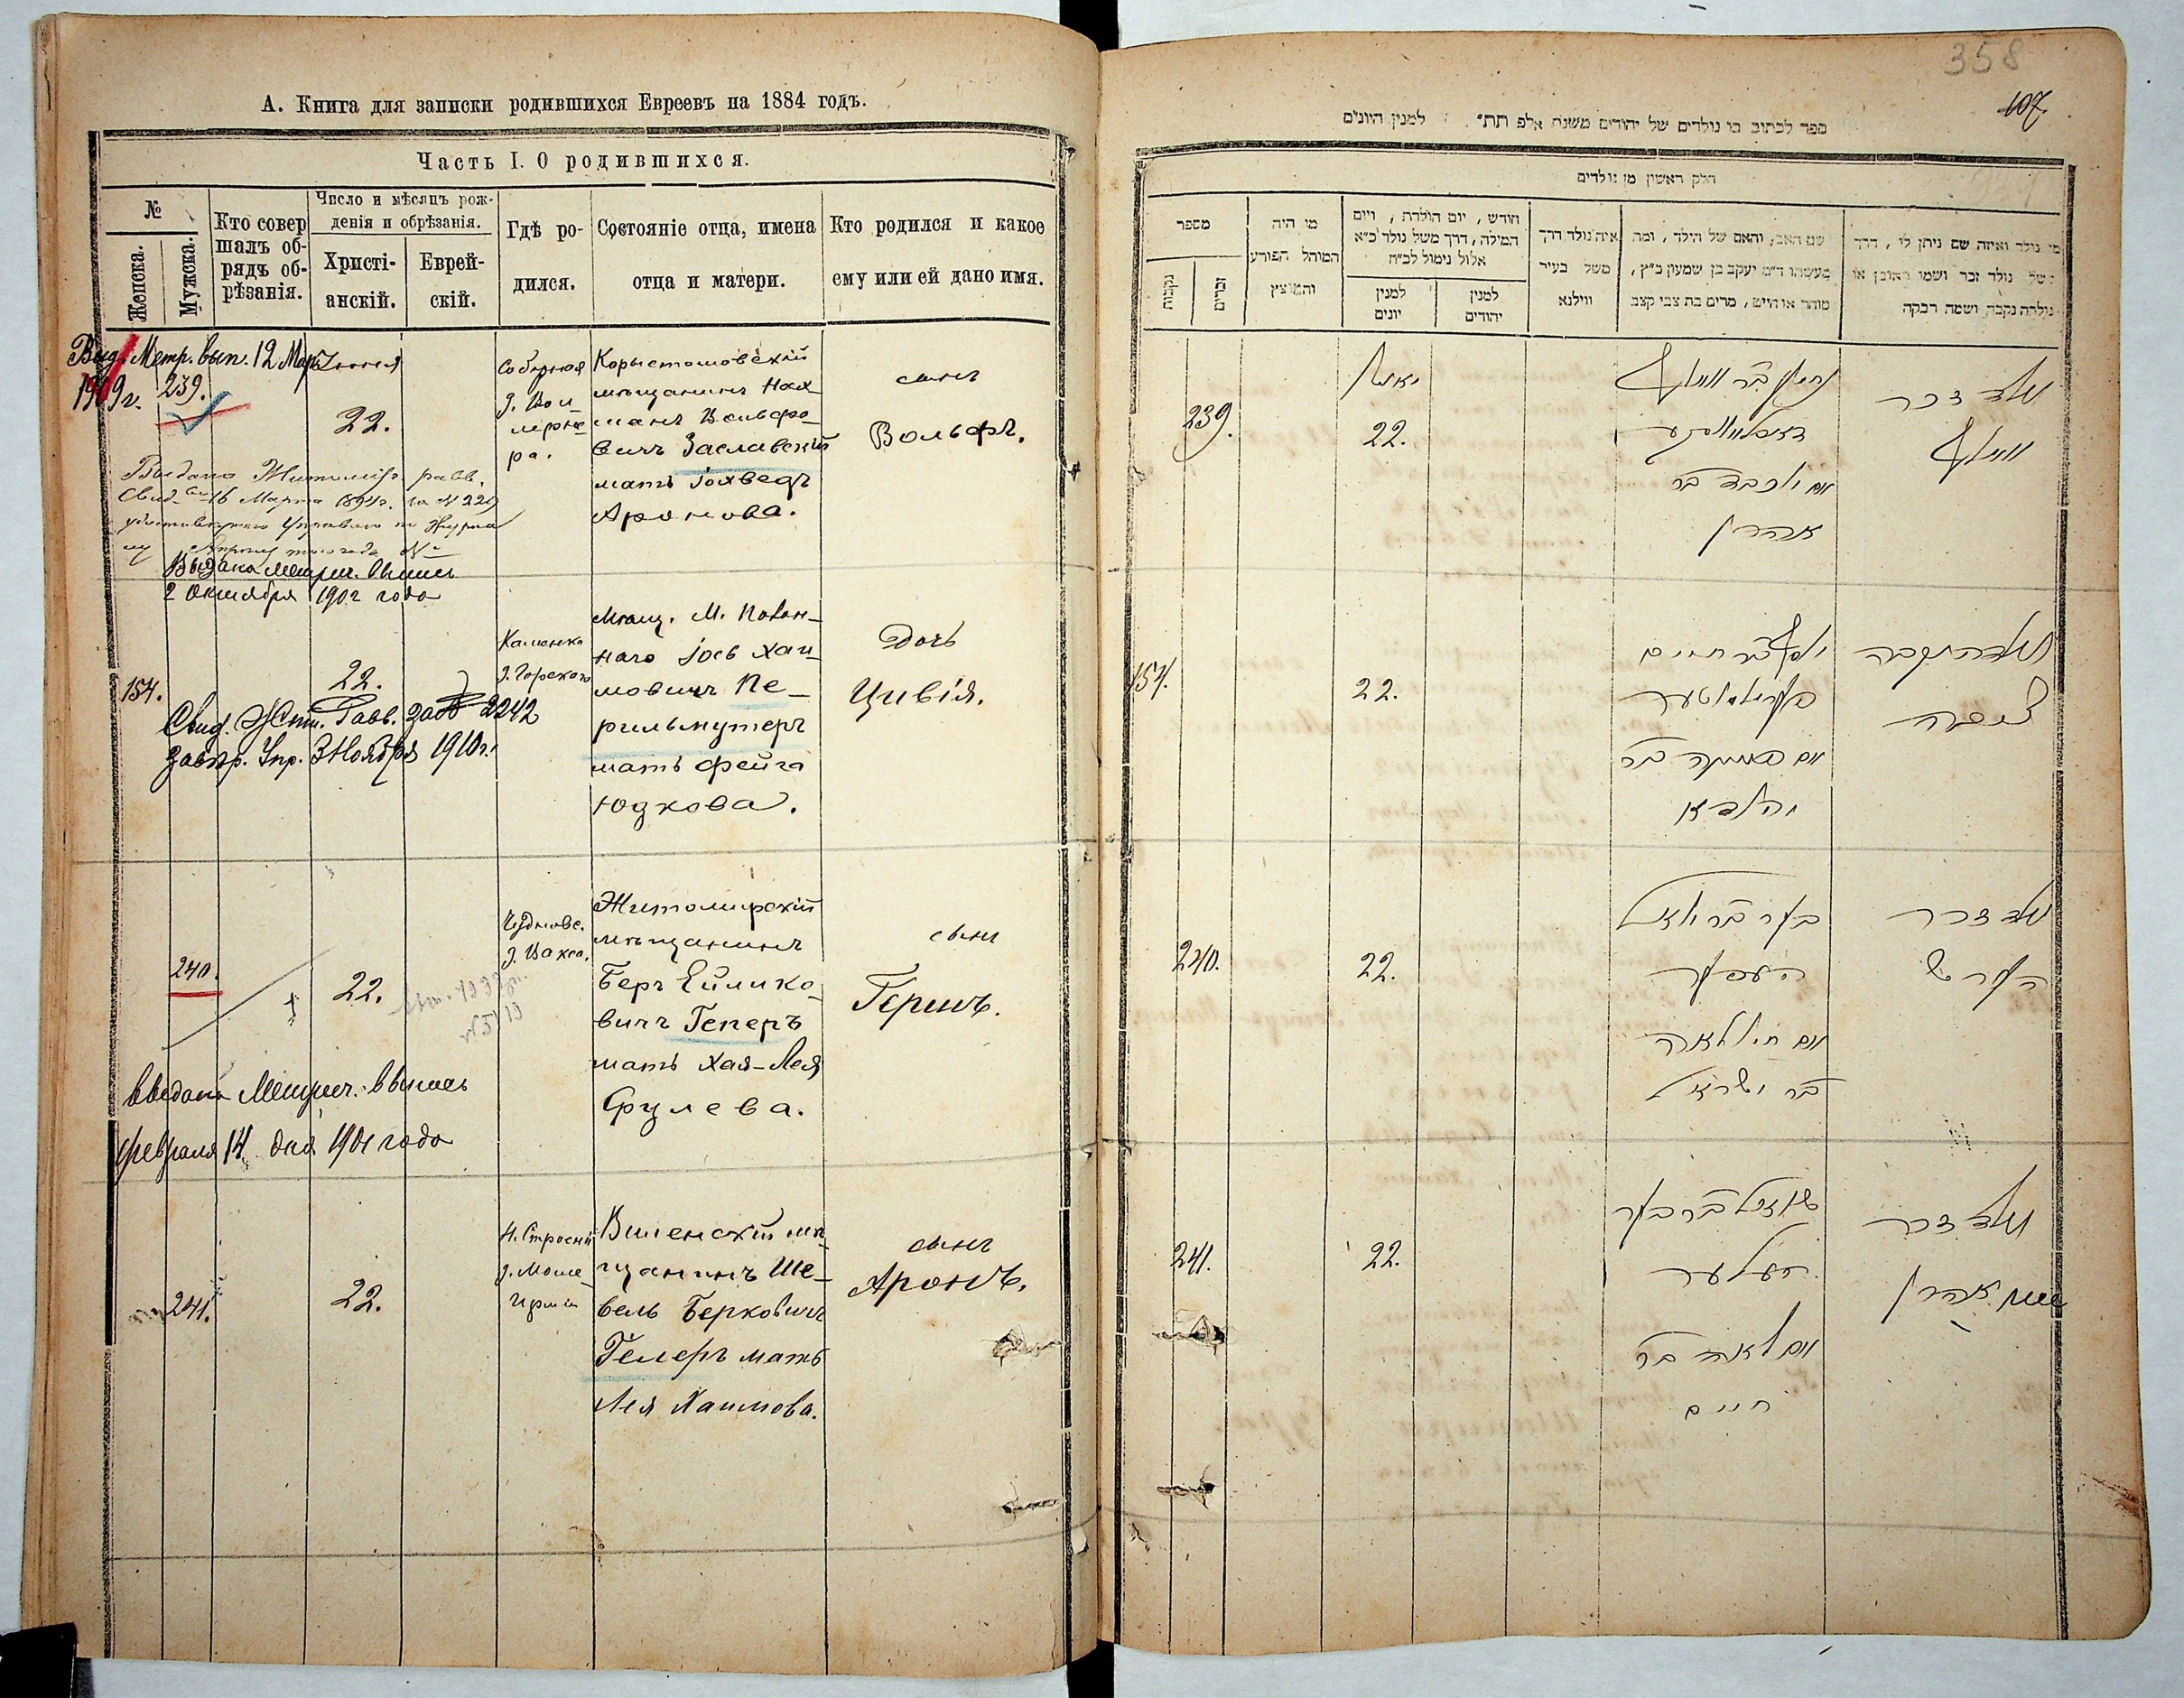 А. Книга для записки родившихся Евреевъ на 1884 годъ.
Часть I. О родившихся.
№
Женска.
Мужска.
Кто совер
шалъ об-
рядъ об-
рѣзанія.
Число и мѣсяцъ рож-
денія и обрѣзанія.
Христі-
анскій.
Еврей-
скій.
Гдѣ ро-
дился.
Состояніе отца, имена
отца и матери.
Кто родился и какое
ему или ей дано имя.
Выд. Метр. вып. 12 Мар.
1909 г.
239.
Іюня
22.
Соборная
д. Вой
ра.
Корыстошовскій
мѣщанинъ Нах-
манъ Вольфо-
вичъ Заславскій
мать Іохведъ
Аронова.
сынъ
Вольфъ.
Выдано Житомір. равв.
Свид. 16 Марта 1894 г. за № 229
Выдана метрич. выпись
2 Октября 1902 года
154.
22.
Каменка
Мѣщ. М. Полон-
наго Іось Хаи-
мовичъ Пе-
рильмутеръ
мать Фейга
Юдкова.
дочь
Цивія.
Свид. Жит. Равв. за № 2242
завѣр. Упр. 3 Ноября 1910 г.
240.
22.
Чудновс.
д. Вакса.
Житомирскій
мѣщанинъ
Беръ Ейлико-
вичъ Геперъ
мать Хая-Лея
Срулева.
сынъ
Гершъ.
выдана Метрич. выпись
февраля 14 дня 1901 года
241.
22.
д. Моше
Виленскій мѣ-
щанинъ Ше-
вель Берковичъ
Гелеръ мать
Лея Хаимова.
сынъ
Аронъ.
358
107.
ספר לכתוב בו נולדים של יהודים משנת אלפ תת״ למנין היונים
חלק ראשון מן נולדים
מספר
נקבות
זכרים
מי היה
המוהל הפורע
והמוצץ
חודש, יום הולדת, ויום
המילה, דרך משל נולד כ״א
אלול נימול לכ״ח
למנין
יונים
למנין
יהודים
איה נולד דרך
משל בעיר
ווילנא
שם האב, והאם של הילד, ומה
מעשהו ד״מ יעקב בן שמעון כ״ץ,
סוחר או חייט, מרים בת צבי קצב
מי נולד ואיזה שם ניתן לו, דרך
משל נולד זכר ושמו ראובן או
נולדה נקבה ושמה רבקה
239.
יוני
22.
נחמן בר וואלף
זאסלאווסקי
אם יוכבד בר
אהרן
נולד זכר
וואלף
154.
22.
יוסף בר חיים
פערילמוטער
אם פייגה בר
יהודא
נולדה נקבה
צביה
240.
22.
בער בר
אם חי׳ לאה
בר ישראל
נולד זכר
הערש
241.
22.
בר בער
העלער
אם לאה בר
חיים
נולד זכר
אהרן